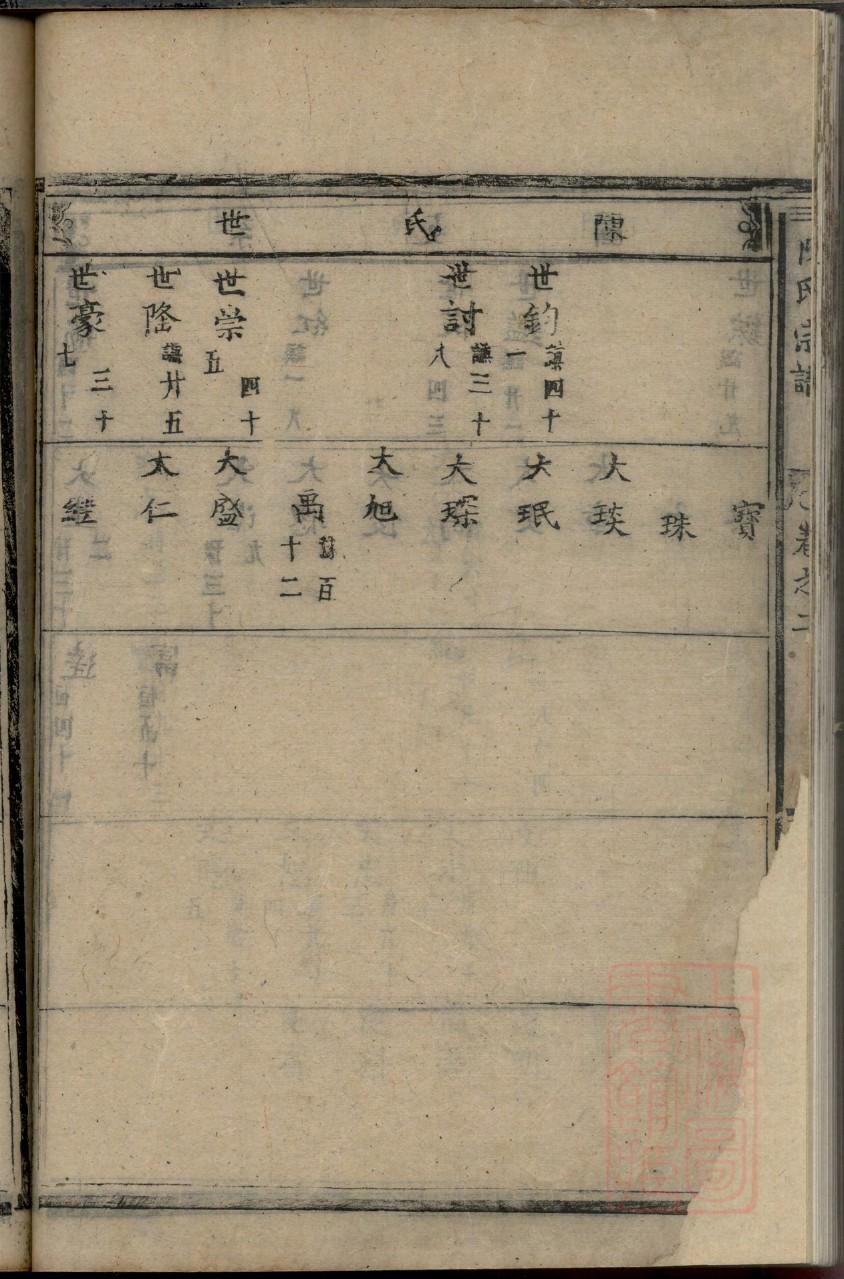 陳氏宗譜 卷之二
陳氏世
世鈞 讌四十一
世討 讌三十八
世崇 四十五
世隆 讌廿五
世豪 三十七
寶
珠
大琰
大珉
大琛
大旭
禹 百十二
大盛
大仁